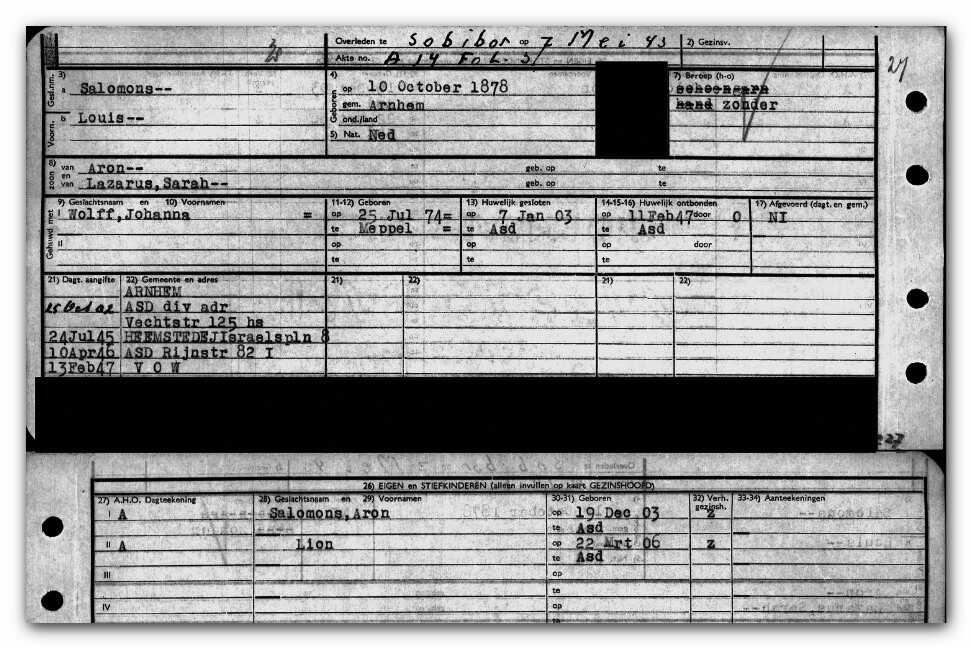 Overleden te Sobibor op 7 Mei 43 2) Gezinsv.
Akte no. A 14 Fol. 3/
27
3) Gesl.nm. a Salomons-- 4) Geboren op 10 October 1878 7) Beroep (h-o)
gem. Arnhem hand zonder
Voorn. b Louis-- ond./land
5) Nat. Ned
zoon 8) van Aron-- geb. op te
en
van Lazarus,Sarah-- geb. op te
9) Geslachtsnaam en 10) Voornamen 11-12) Geboren 13) Huwelijk gesloten 14-15-16) Huwelijk ontbonden 17) Afgevoerd (dagt. en gem.)
Gehuwd met I Wolff,Johanna = op 25 Jul 74= op 7 Jan 03 op 11Feb47 door O NI
te Meppel = te Asd te Asd
II op op op door
te te te
21) Dagt. aangifte 22) Gemeente en adres 21) 22) 21) 22)
ARNHEM
ASD div adr
Vechtstr 125 hs
24Jul45 HEEMSTEDEJIsraelspln 8
10Apr46 ASD Rijnstr 82 I
13Feb47 V O W
227
26) EIGEN en STIEFKINDEREN (alleen invullen op kaart GEZINSHOOFD)
27) A.H.O. Dagteekening 28) Geslachtsnaam en 29) Voornamen 30-31) Geboren 32) Verh. gezinsh. 33-34) Aanteekeningen
I A Salomons,Aron op 19 Dec 03 z
te Asd
II A Lion op 22 Mrt 06 z
te Asd
III op
te
IV op
te